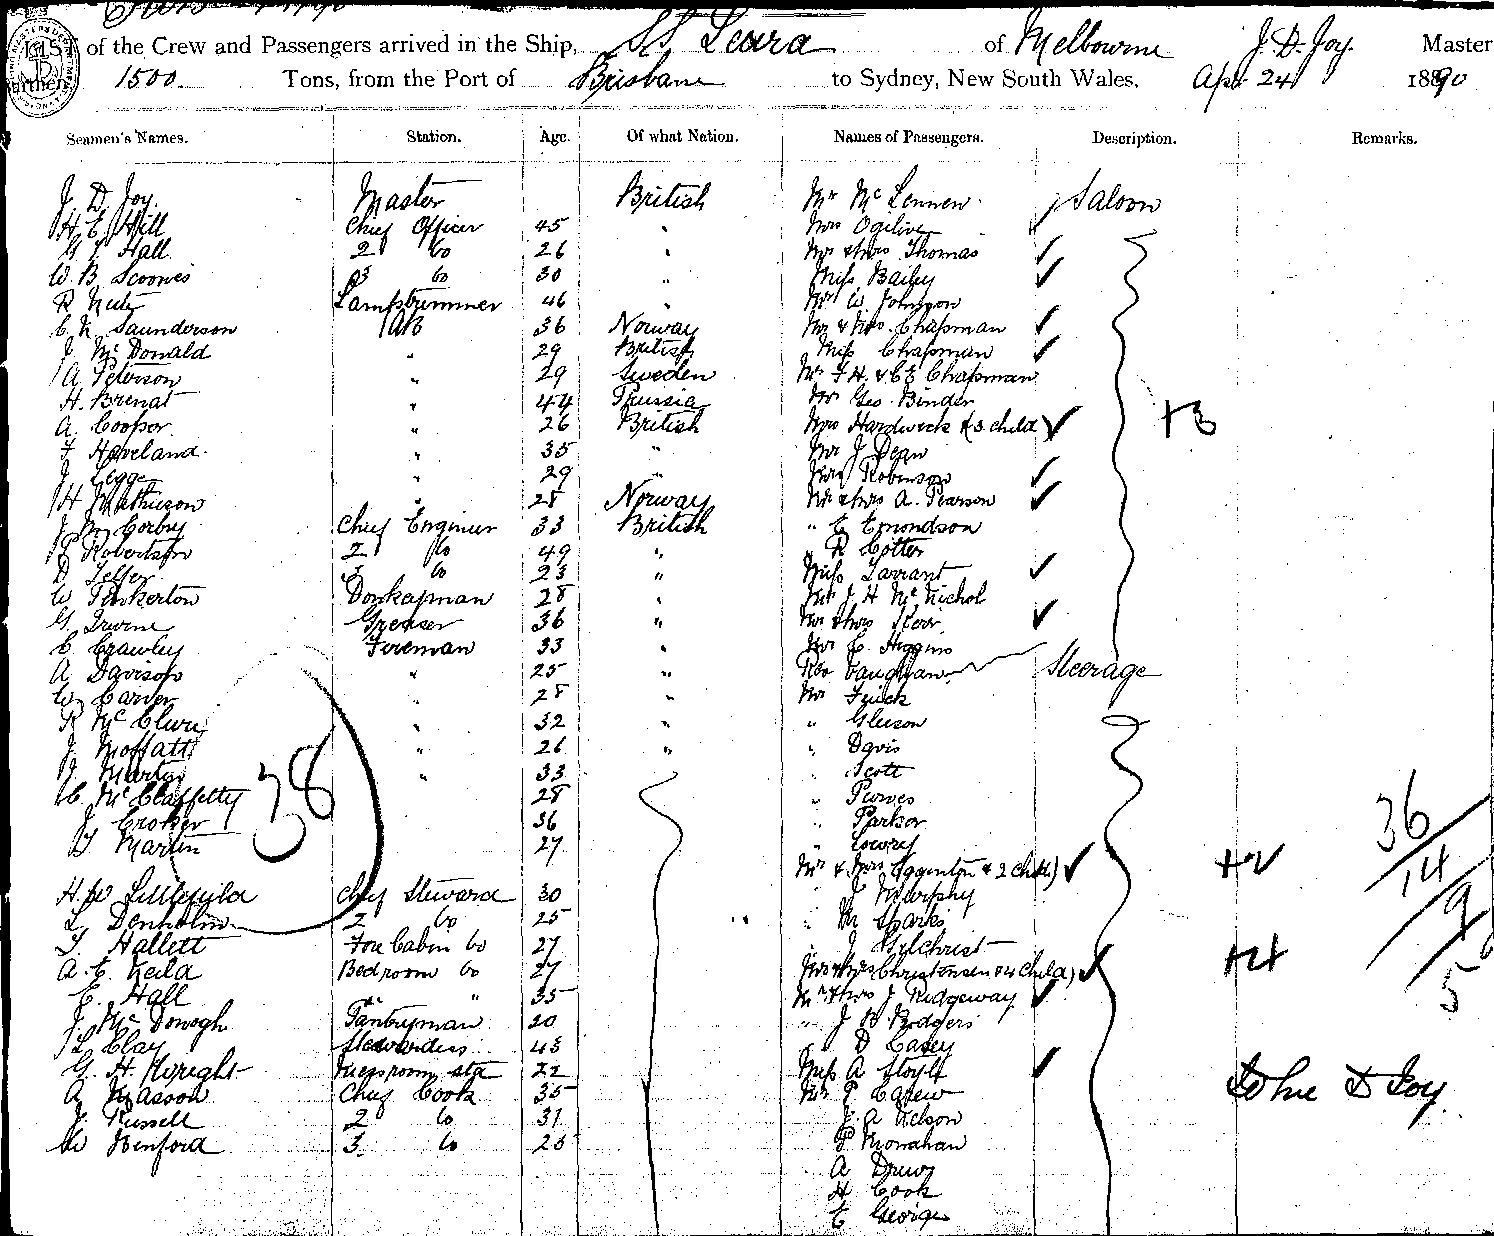 LIST of the Crew and Passengers arrived in the Ship, SS Leura of Melbourne J. D. Joy. Master
Burthen 1500 Tons, from the Port of Brisbane to Sydney, New South Wales, Apr 24 1890
Seamen's Names. Station. Age. Of what Nation. Names of Passengers. Description. Remarks.
J. D. Joy. Master British Mr McLennen Saloon
H. E. Hill Chief Officer 45 " Mrs Ogilive
G. J. Hall 2 Do 26 " Mr & Mrs Thomas
W. B. Scoones 3 Do 30 " Miss Bailey
R Lamptrimmer 46 " Mr W. Johnson
C. N. Saunderson AB 36 Norway Mr & Mrs Chapman
J. McDonald " 29 British Miss Chapman
A. Peterson " 29 Sweden Mr F H. & C E Chapman
H. Brenat " 44 Prussia Mr Geo. Binder
A. Cooper " 26 British Mrs Hardwick & 3 child +3
F Haveland " 35 " Mr J Dean
J. Legge " 29 " Mrs Robinson
H Mathieson " 28 Norway Mr & Mrs A. Pearson
J. M. Corby Chief Engineer 33 British " E Emondson
P Robertson 2 Do 49 " " R Cotter
D Telfer 3 Do 23 " Miss Tarrant
W Pinkerton Donkeyman 28 " Mr J. H McNichol
G. Irvine Greaser 36 " Mr & Mrs Kerr
C. Crawley Fireman 33 " Mr C. Higgins
A Davison " 25 " Rev Vaughan Steerage
W. Carver " 28 " Mr Frick
R McClure " 32 " " Gleeson
J. Moffatt " 26 " " Davis
J. Martin " 33 " Scott
C. McClaffetty 28 " Purves
J. Croker 36 " Parker
D. Martin 27 " Lowry
38
Mr & Mrs Egginton & 2 Chd) +2
H. W Littlefield Chief Steward 30 " J Murphy
L. Denholm 2 Do 25 " M Sparks
T. Hallett Fore Cabin Do 27 " J Gilchrist
A. E. Keila Bedroom Do 27 Mr & Mrs Christensen & 4 Child) +4
E. Hall " " 35 Mr & Mrs J. Ridgeway
J. McDonogh Pantryman 20 " J B Rodgers
L. Clay Stewardess 43 " D Casey
G. H. Wright Messroom Std 22 Miss A Stoyle
A Masson Chief Cook 35 Mr P Carew
J. Russell 2 Do 31 J. A Nelson
W Benford 3 Do 25 P Monahan
A Drew
H Cook
E George
36
14
9
5
John D Joy.